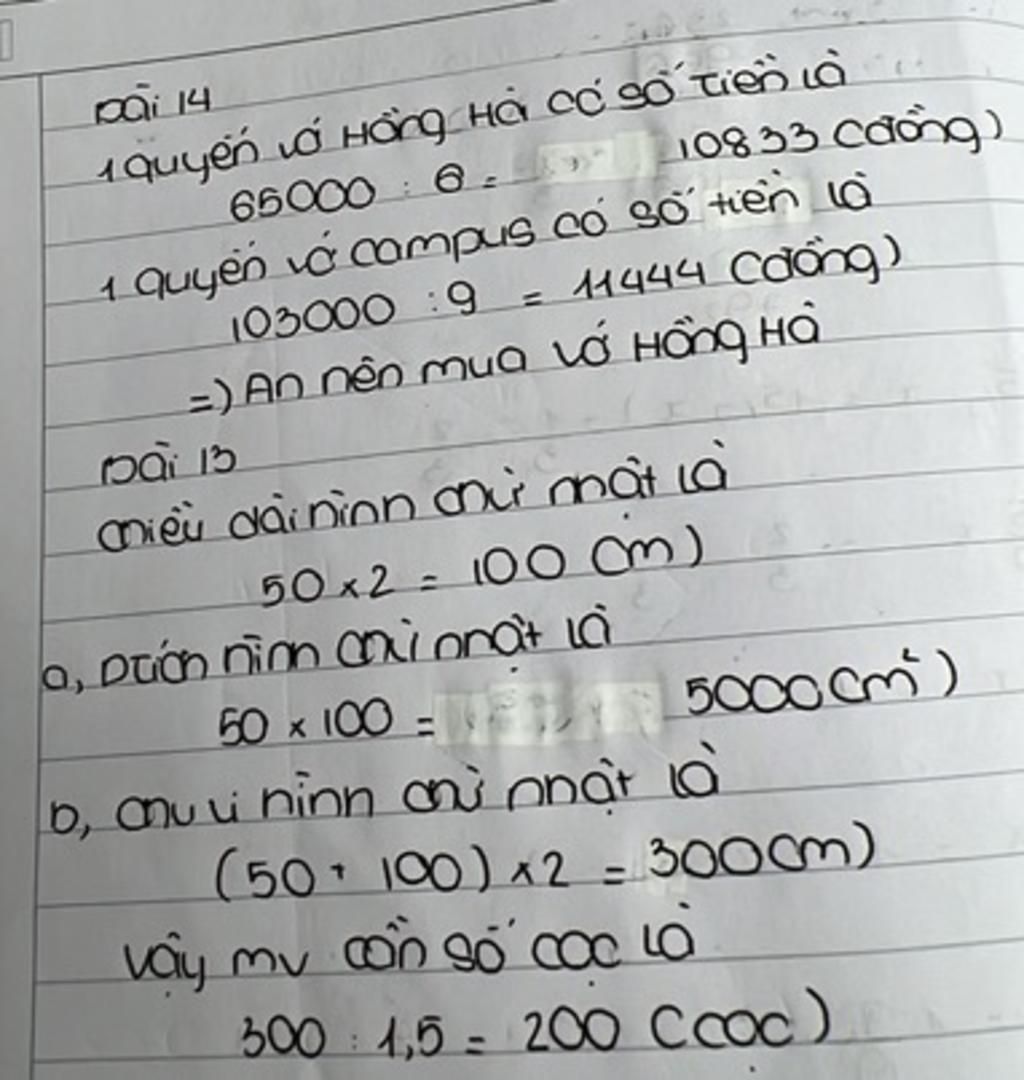 Bài 14
1 quyển vở Hồng Hà có số tiền là
65000 : 6 = 10833 (đồng)
1 quyển vở campus có số tiền là
103000 : 9 = 11444 (đồng)
=) An nên mua vở Hồng Hà
Bài 13
chiều dài hình chữ nhật là
50 x 2 = 100 (m)
a, Dtích hình chữ nhật là
50 x 100 = 5000 (m²)
b, chu vi hình chữ nhật là
(50 + 100) x 2 = 300 (m)
vậy mv cần số cọc là
300 : 1,5 = 200 (cọc)